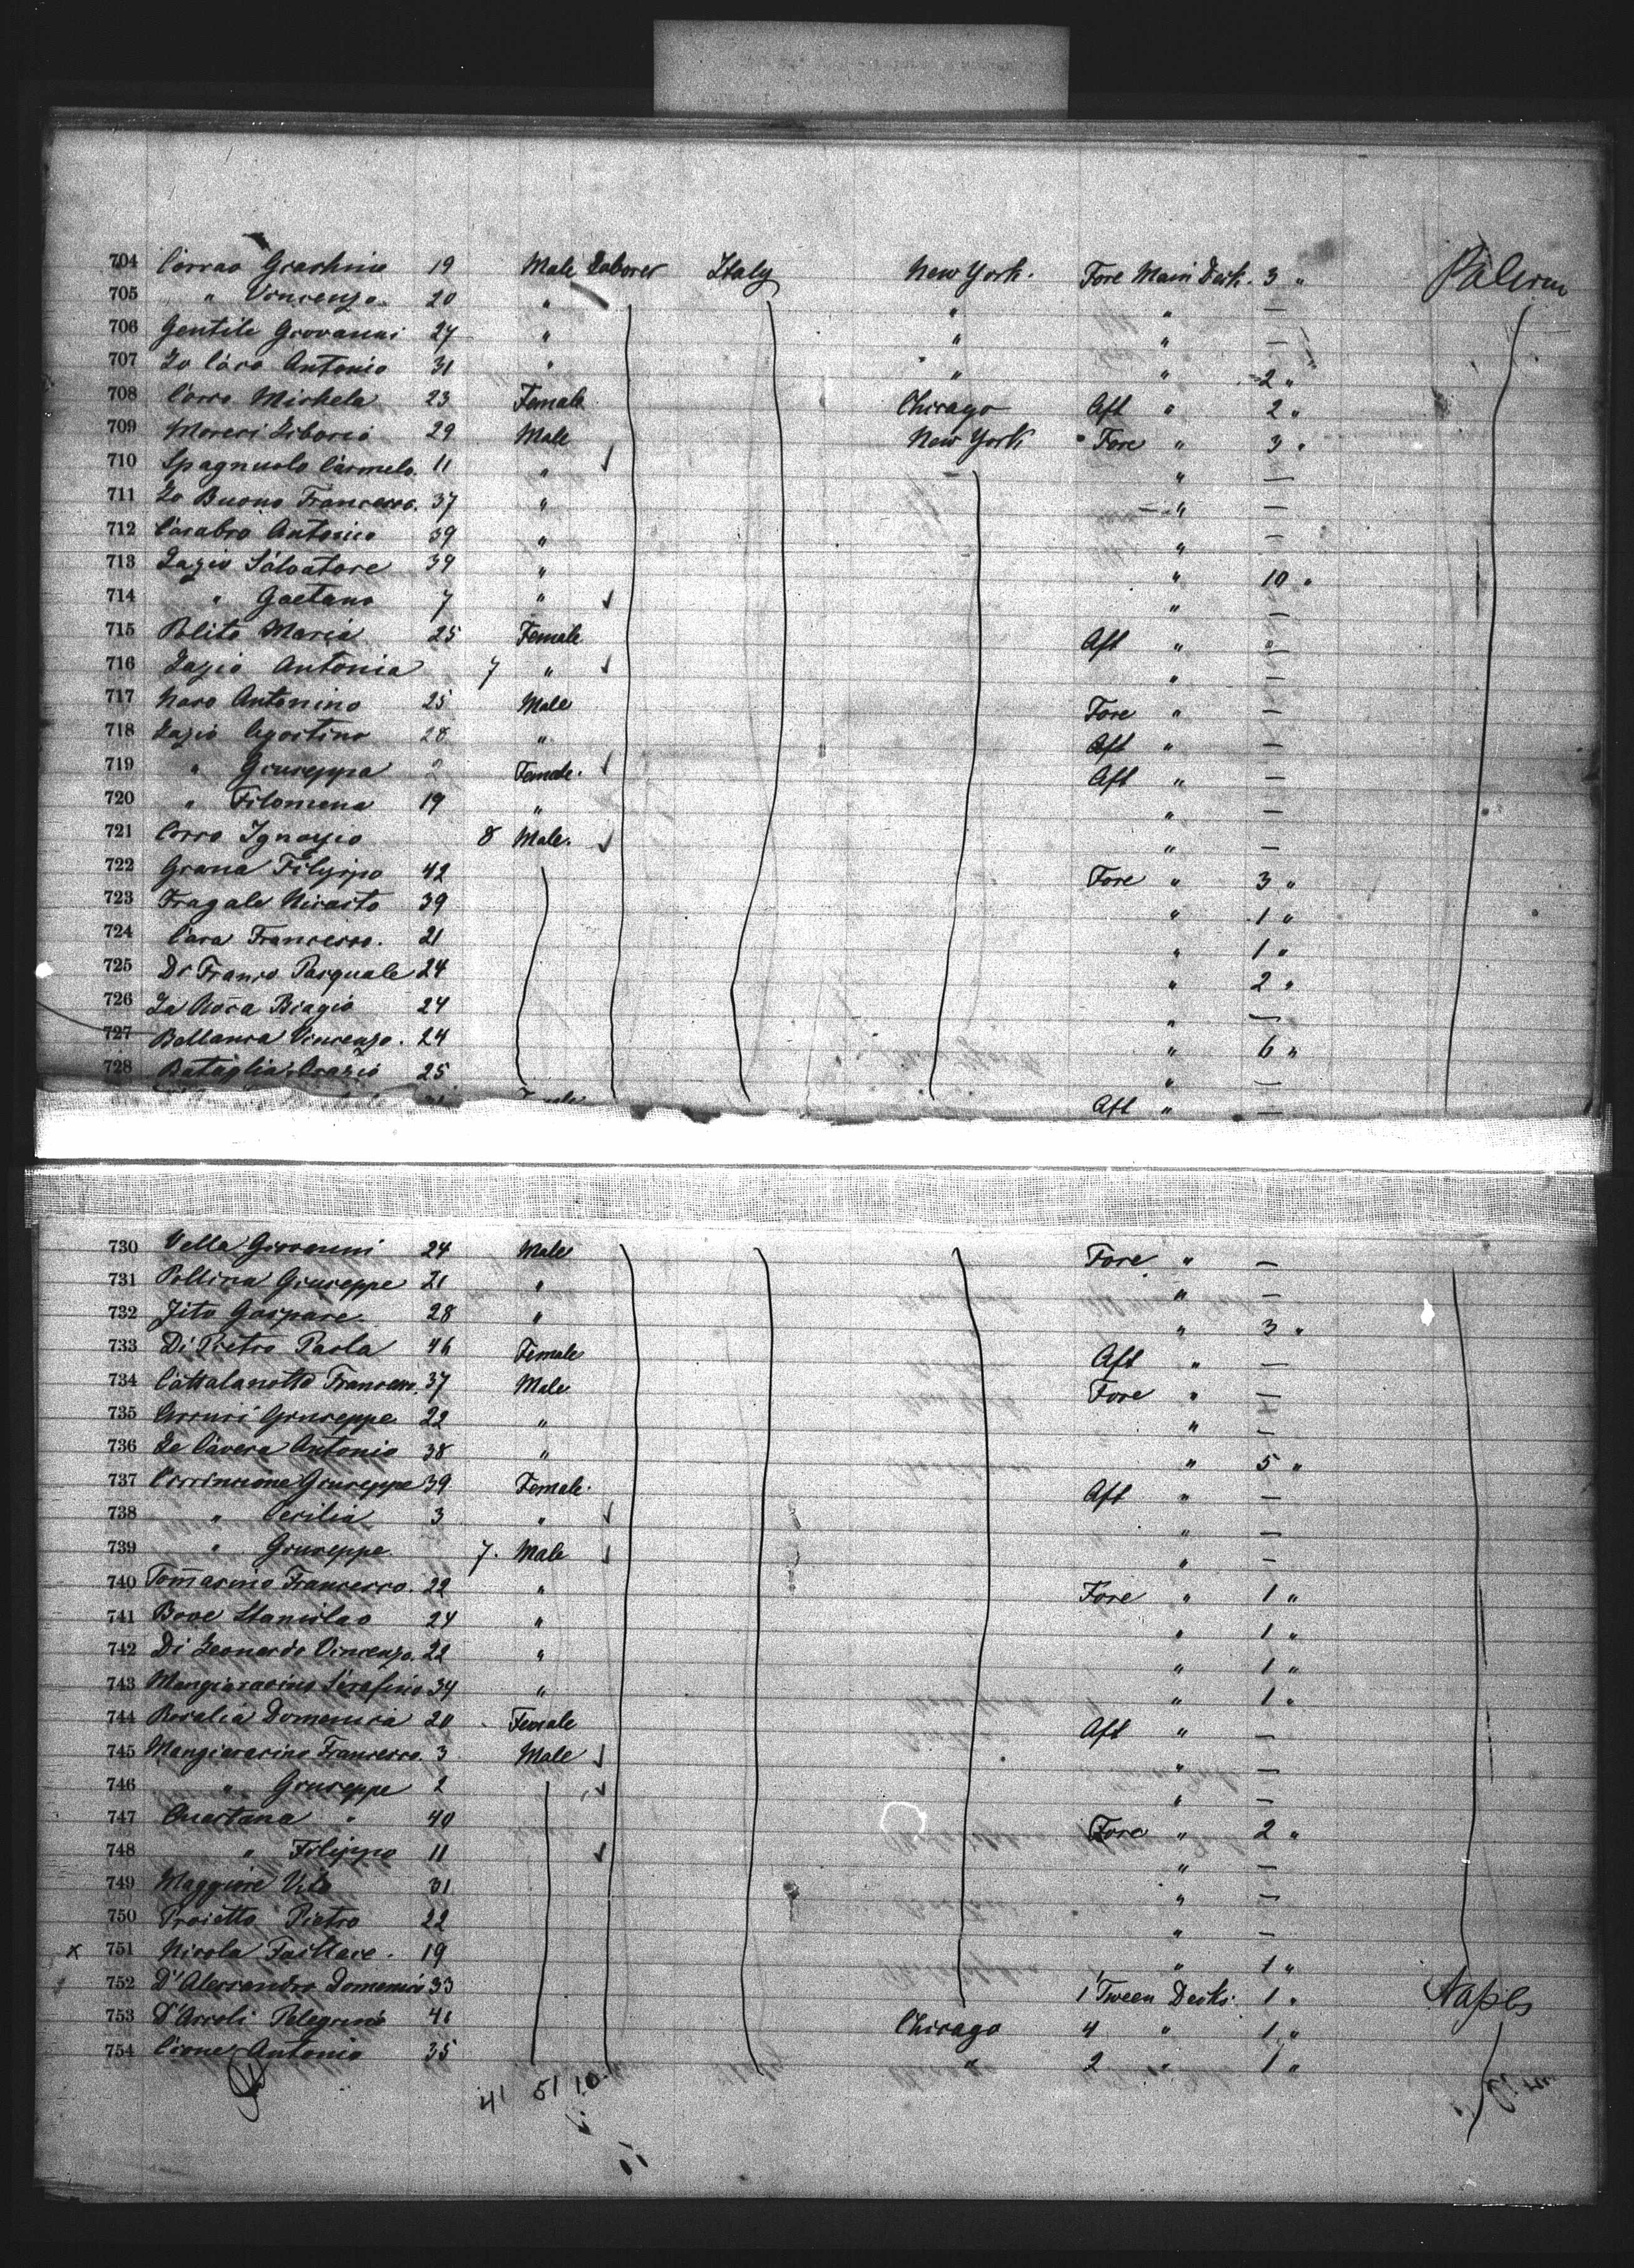 704 Corrao Giachino 19 Male Laborer Italy New York. Fore Main Deck. 3 " Palermo
705 " Vincenzo 20 " " " —
706 Gentile Giovanni 27 " " " —
707 Lo Caro Antonio 31 " " " 2 "
708 Corro Michela 23 Female Chicago Aft " 2 "
709 Moreci Liborio 29 Male New York Fore " 3 "
710 Spagnuolo Carmelo. 11 " " —
711 Lo Buono Francesco. 37 " " —
712 Carabro Antonio 39 " " —
713 Lazio Salvatore 39 " " 10 "
714 " Gaetano 7 " " —
715 Polito Maria 25 Female Aft " —
716 Lazio Antonia 7 " " —
717 Naso Antonino 25 Male Fore " —
718 Lazio Agostino 28 " Aft " —
719 " Giuseppa 2 Female. Aft " —
720 " Filomena 19 " " —
721 Corro Ignazio 8 Male. " —
722 Grana Filippo 42 Fore " 3 "
723 Fragale Nicasto 39 " 1 "
724 Cara Francesco. 21 " 1 "
725 Di Franco Pasquale 24 " 2 "
726 La Biagio 24 " —
727 Bellanca Vincenzo. 24 " 6 "
728 Bataglia Orazio 25 " —
Aft " —
730 Vella Giovanni 24 Male Fore " —
731 Pollina Giuseppe 21 " " —
732 Zito Gaspare 28 " " 3 "
733 Di Pietro Paola 46 Female Aft " —
734 Cattalanotto Francesco. 37 Male Fore " —
735 Giuseppe 22 " " —
736 La Cavera Antonio 38 " " 5 "
737 Cirrincione Giuseppe 39 Female. Aft " —
738 " Cecilia 3 " " —
739 " Giuseppe 7. Male " —
740 Tomasino Francesco. 22 " Fore " 1 "
741 Bove Stanislao 24 " " 1 "
742 Di Leonardo Vincenzo. 22 " " 1 "
743 Mangiaracino Serafino 34 " " 1 "
744 Rosalia Domenica 20 Female Aft " —
745 Mangiaracino Francesco. 3 Male " —
746 " Giuseppe 2 " —
747 Quartana " 40 Fore " 2 "
748 " Filippo 11 " —
749 Maggiore Vito 31 " —
750 Proietto Pietro 22 " —
x 751 Nicola Faillace. 19 " 1 "
752 D'Alessandro Domenico 33 1 Tween Decks. 1 " Naples
753 D'Ascoli Pelegrino 41 Chicago 4 " 1 "
754 Cione Antonio 35 " 2 " 1 "
41 51 10
11